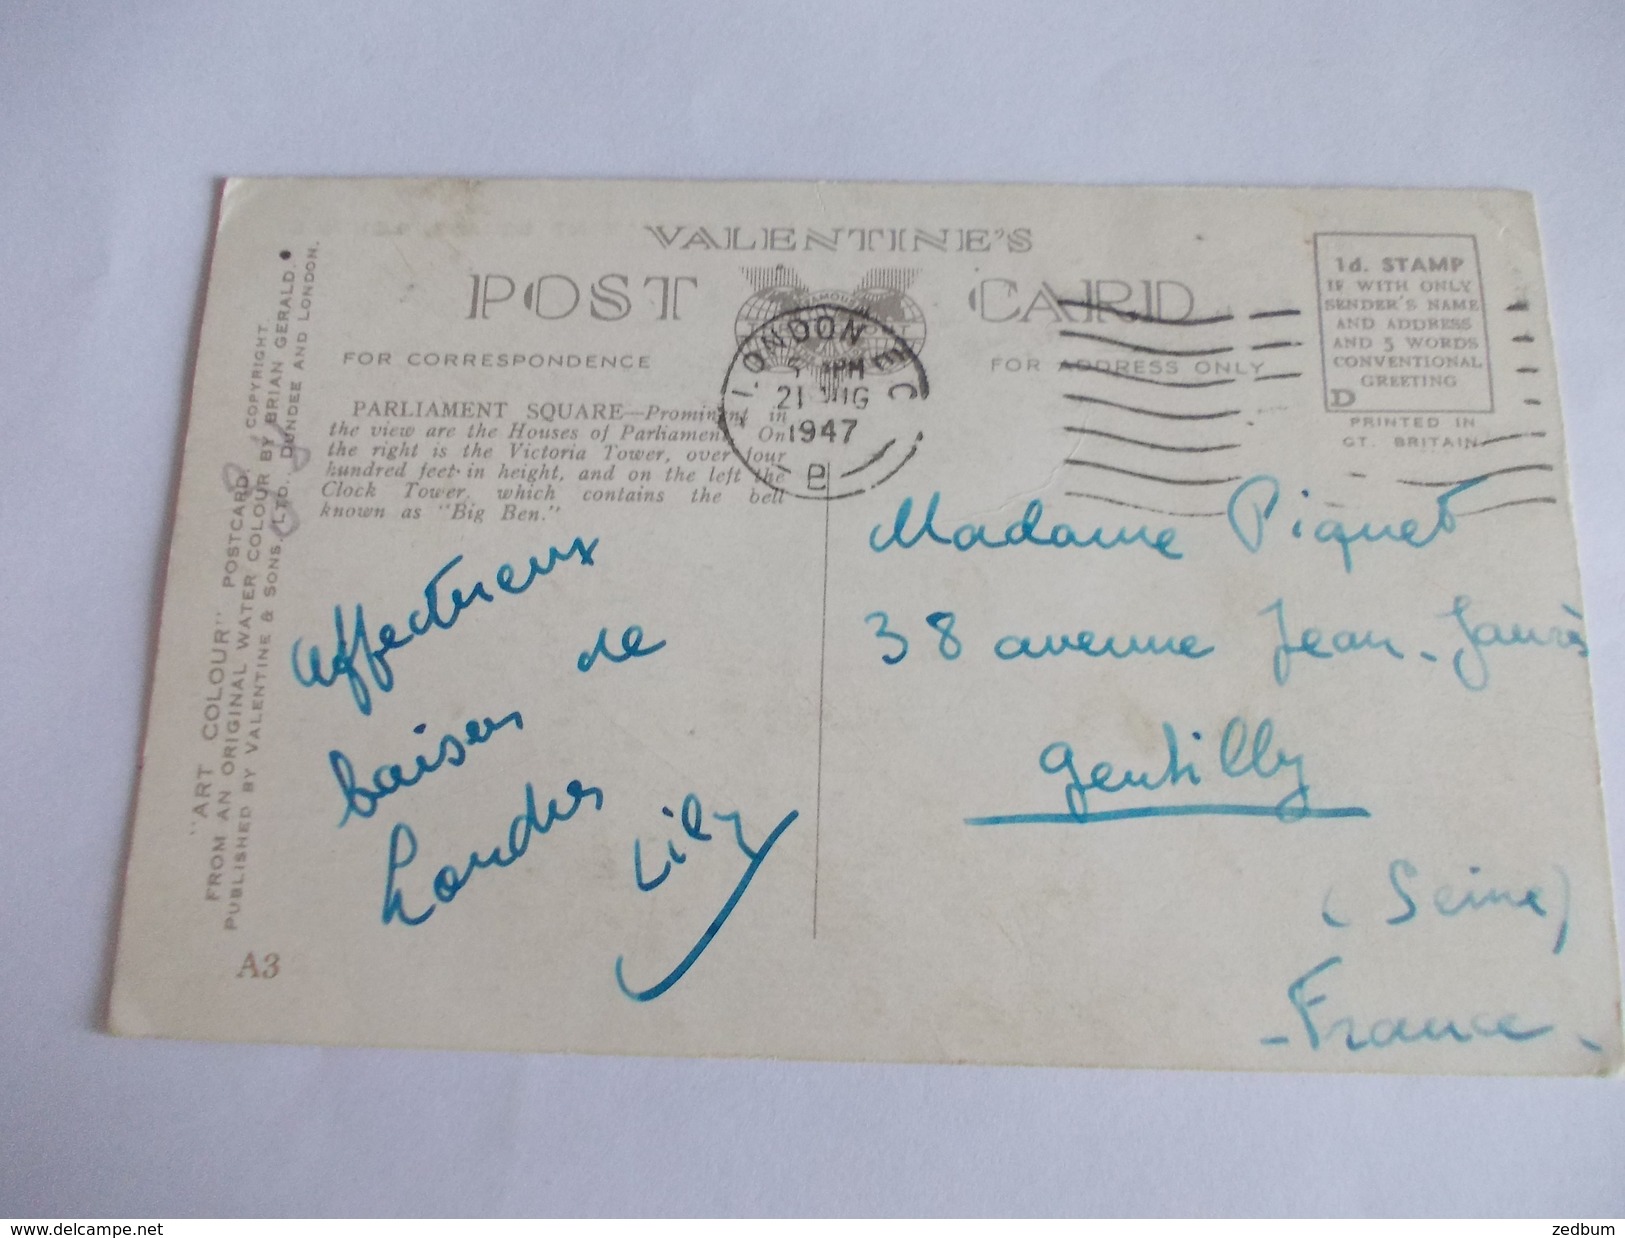 VALENTINE'S
POST CARD
FOR CORRESPONDENCE
FOR ADDRESS ONLY
1d. STAMP
IF WITH ONLY
SENDER'S NAME
AND ADDRESS
AND 5 WORDS
CONVENTIONAL
GREETING
D
PRINTED IN
GT. BRITAIN
LONDON E C
PM
21 AUG
1947
PARLIAMENT SQUARE—Prominent in
the view are the Houses of Parliament. On
the right is the Victoria Tower, over four
hundred feet in height, and on the left the
Clock Tower, which contains the bell
known as "Big Ben."
Affectueux
baisers de
Londres
Lily
Madame Piquet
38 avenue Jean-Jaurès
Gentilly
(Seine)
- France -
"ART COLOUR" POSTCARD, COPYRIGHT.
FROM AN ORIGINAL WATER COLOUR BY BRIAN GERALD.
PUBLISHED BY VALENTINE & SONS, LTD. DUNDEE AND LONDON.
A3
www.delcampe.net
zedbum